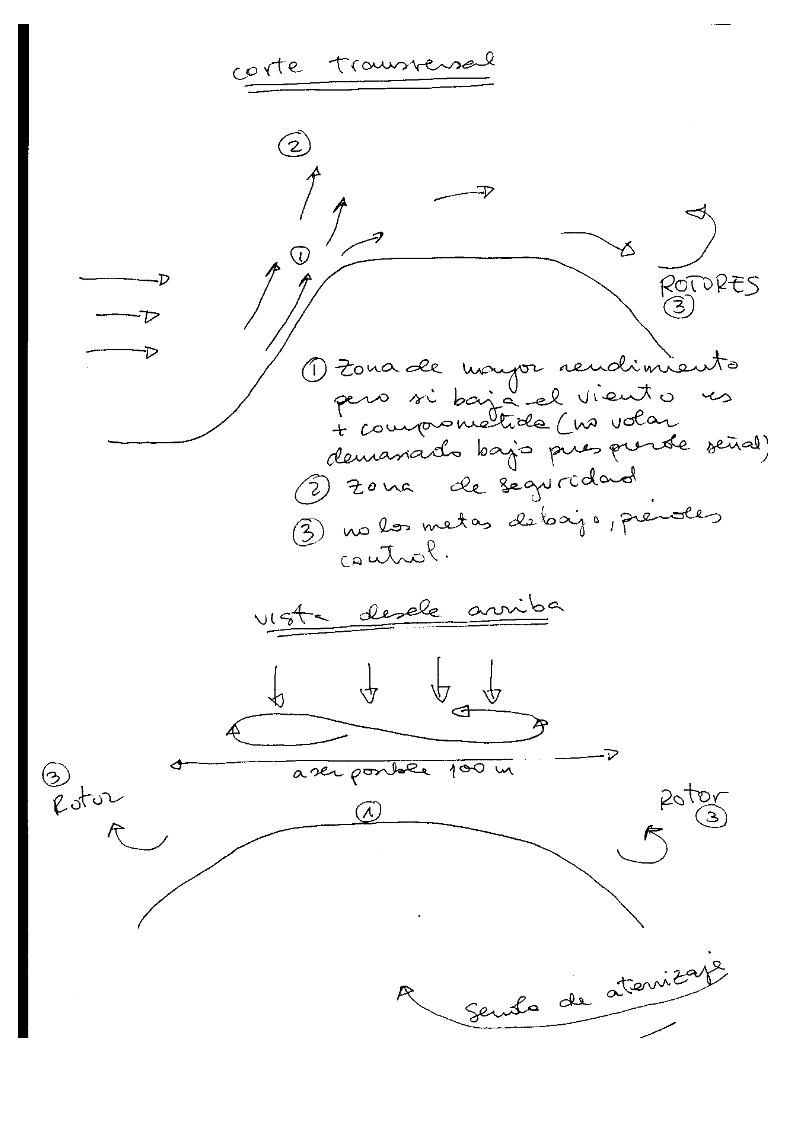 corte transversal
②
①
ROTORES
③
① zona de mayor rendimiento
pero si baja el viento es
+ comprometida (no volar
demasiado bajo pues pierde señal)
② zona de seguridad
③ no los metas debajo, pierdes
control.
vista desde arriba
a ser posible 100 m
③
Rotor
①
Rotor
③
Sentido de aterrizaje